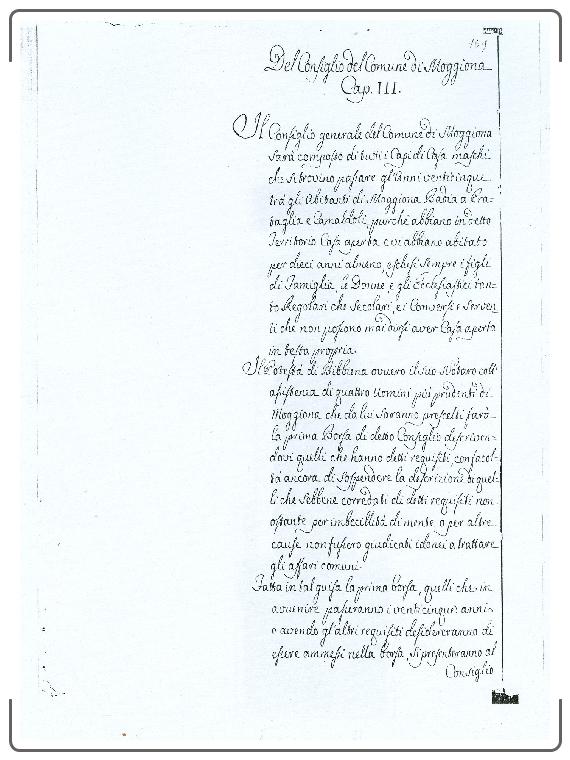 Del Consiglio del Comune di Moggiona
Cap. III.
Il Consiglio generale del Comune di Moggiona
sarà composto di tutti i Capi di Casa maschi
che si trovino passare gl'anni venticinque
trà gli Abitanti di Moggiona Badia a Pra-
taglia e Camaldoli, purchè abbiano in detto
Territorio Casa aperta e vi abbiano abitato
per dieci anni almeno, esclusi sempre i figli
di Famiglia, le Donne e gli Ecclesiastici tan-
to Regolari che Secolari, e i Conversi e Serven-
ti che non possono mai dirsi aver Casa aperta
in testa propria.
Il Potestà di Bibbiena ovvero il suo Notaro coll'
assistenza di quattro Uomini più prudenti di
Moggiona che da lui saranno prescelti farà
la prima Borsa di detto Consiglio descriven-
dovi quelli che hanno detti requisiti con facol-
tà ancora di sospendere la descrizione di quel-
li che sebbene corredati di detti requisiti non
ostante per imbecillità di mente o per altre
cause non fussero giudicati idonei a trattare
gli affari comuni.
Fatta in tal guisa la prima borsa, quelli che in
avvenire passeranno i venticinque anni
e avendo gl'altri requisiti desidereranno di
essere ammessi nella borsa, si presenteranno al
Consiglio